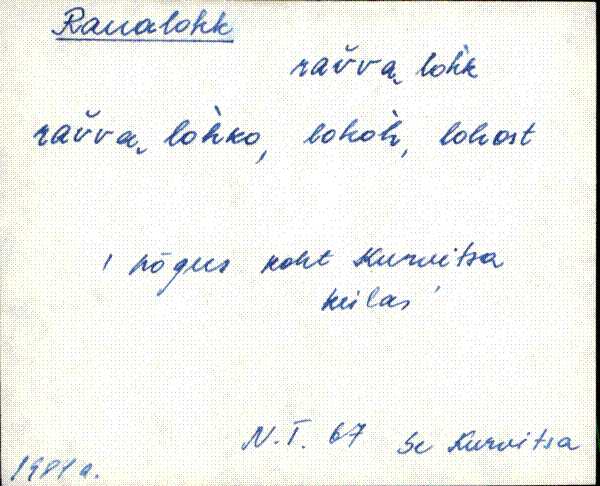 Raualohk
raŭva̬ lohk
raŭva̬ lohko, lohoh, lohost
' nõgus koht Kurvitsa
külas '
N.T. 67 Se Kurvitsa
1981a.